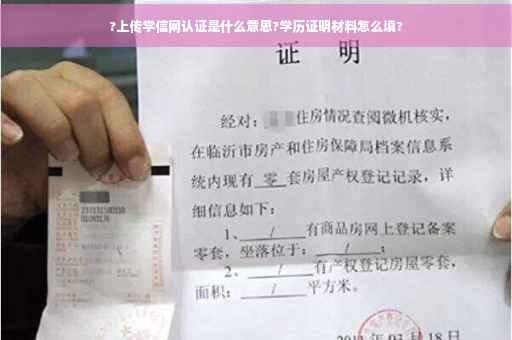 ?上传学信网认证是什么意思?学历证明材料怎么填?
证 明
经对: 住房情况查阅微机核实,
在临沂市房产和住房保障局档案信息系
统内现有 零 套房屋产权登记记录, 详
细信息如下:
1、 / 有商品房网上登记备案
零套, 坐落位于: / ;
2、 / 有产权登记房屋零套,
面积: / 平方米。
03月18日